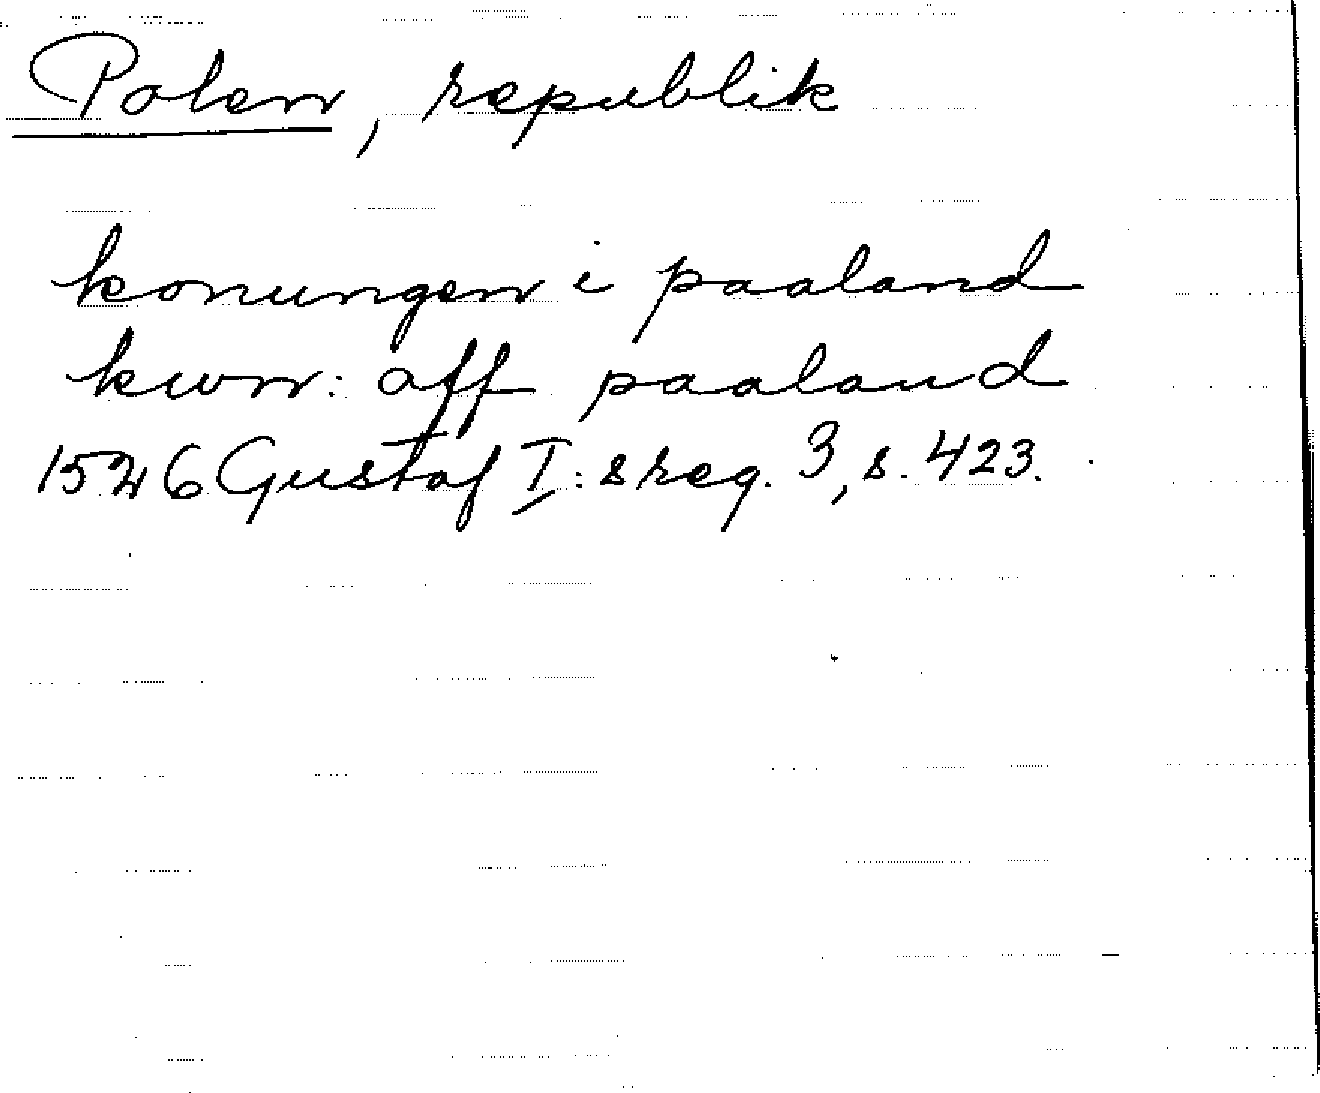 Polen, republik
konungen i paaland
kwn: aff paaland
1526 Gustaf I:s reg. 3, s. 423.